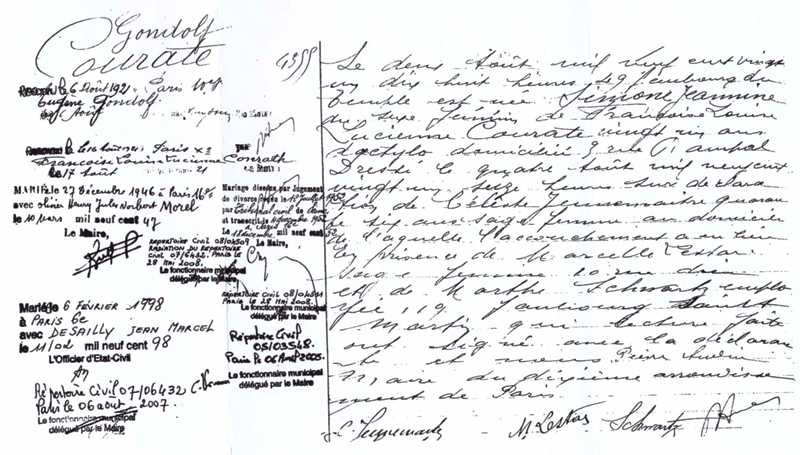 Gondolf
Courate
4355
Reconnu le 6 Août 1921 Paris
Eugène Gondolf
Paris
Françoise Louise Lucienne Courath
le 17 Août 21
MARIÉ le 27 Décembre 1946 à Paris
avec Olivier Henry Jules Norbert Morel
le 10 Mars mil neuf cent 47
Le Maire,
Mariage dissous par Jugement
de divorce rendu le Juillet 1952
par Tribunal civil de
et transcrit le
mil neuf cent 52
Le Maire,
REPERTOIRE CIVIL 08/04509
RADIATION DU REPERTOIRE
CIVIL 07/6432. PARIS LE
28 MAI 2008.
Le fonctionnaire municipal
délégué par le Maire
REPERTOIRE CIVIL 08/04511
PARIS LE 28 MAI 2008.
Le fonctionnaire municipal
délégué par le Maire
Répertoire Civil
05/03548.
Paris le 06 Avril 2005.
Le fonctionnaire municipal
délégué par le Maire
Mariée 6 FÉVRIER 1998
à PARIS 6e
avec DESAILLY JEAN MARCEL
le 11/02 mil neuf cent 98
L'Officier d'Etat-Civil
Répertoire Civil 07/06432
Paris le 06 août 2007.
Le fonctionnaire municipal
délégué par le Maire
Le deux Août mil neuf cent vingt
un dix huit heures 49 faubourg du
Temple est née Simone Jeannine
du sexe féminin de Françoise Louise
Lucienne Courate vingt ans
dactylo domiciliée 3 rue
Dressé le quatre Août mil neuf cent
vingt un seize heures sur décla
ration de Céleste Jennemaitre quaran
te six ans sage femme au domicile
de laquelle l'accouchement a eu lieu
en présence de Marcelle Lestas
sage femme 10 rue
et de Marthe Schwartz emplo
yée 119 faubourg Saint
Martin qui lecture faite
ont signé avec la déclaran
te et nous Pierre
Maire du dixième arrondisse
ment de Paris.
C. Jennemaitre M. Lestas Schwartz